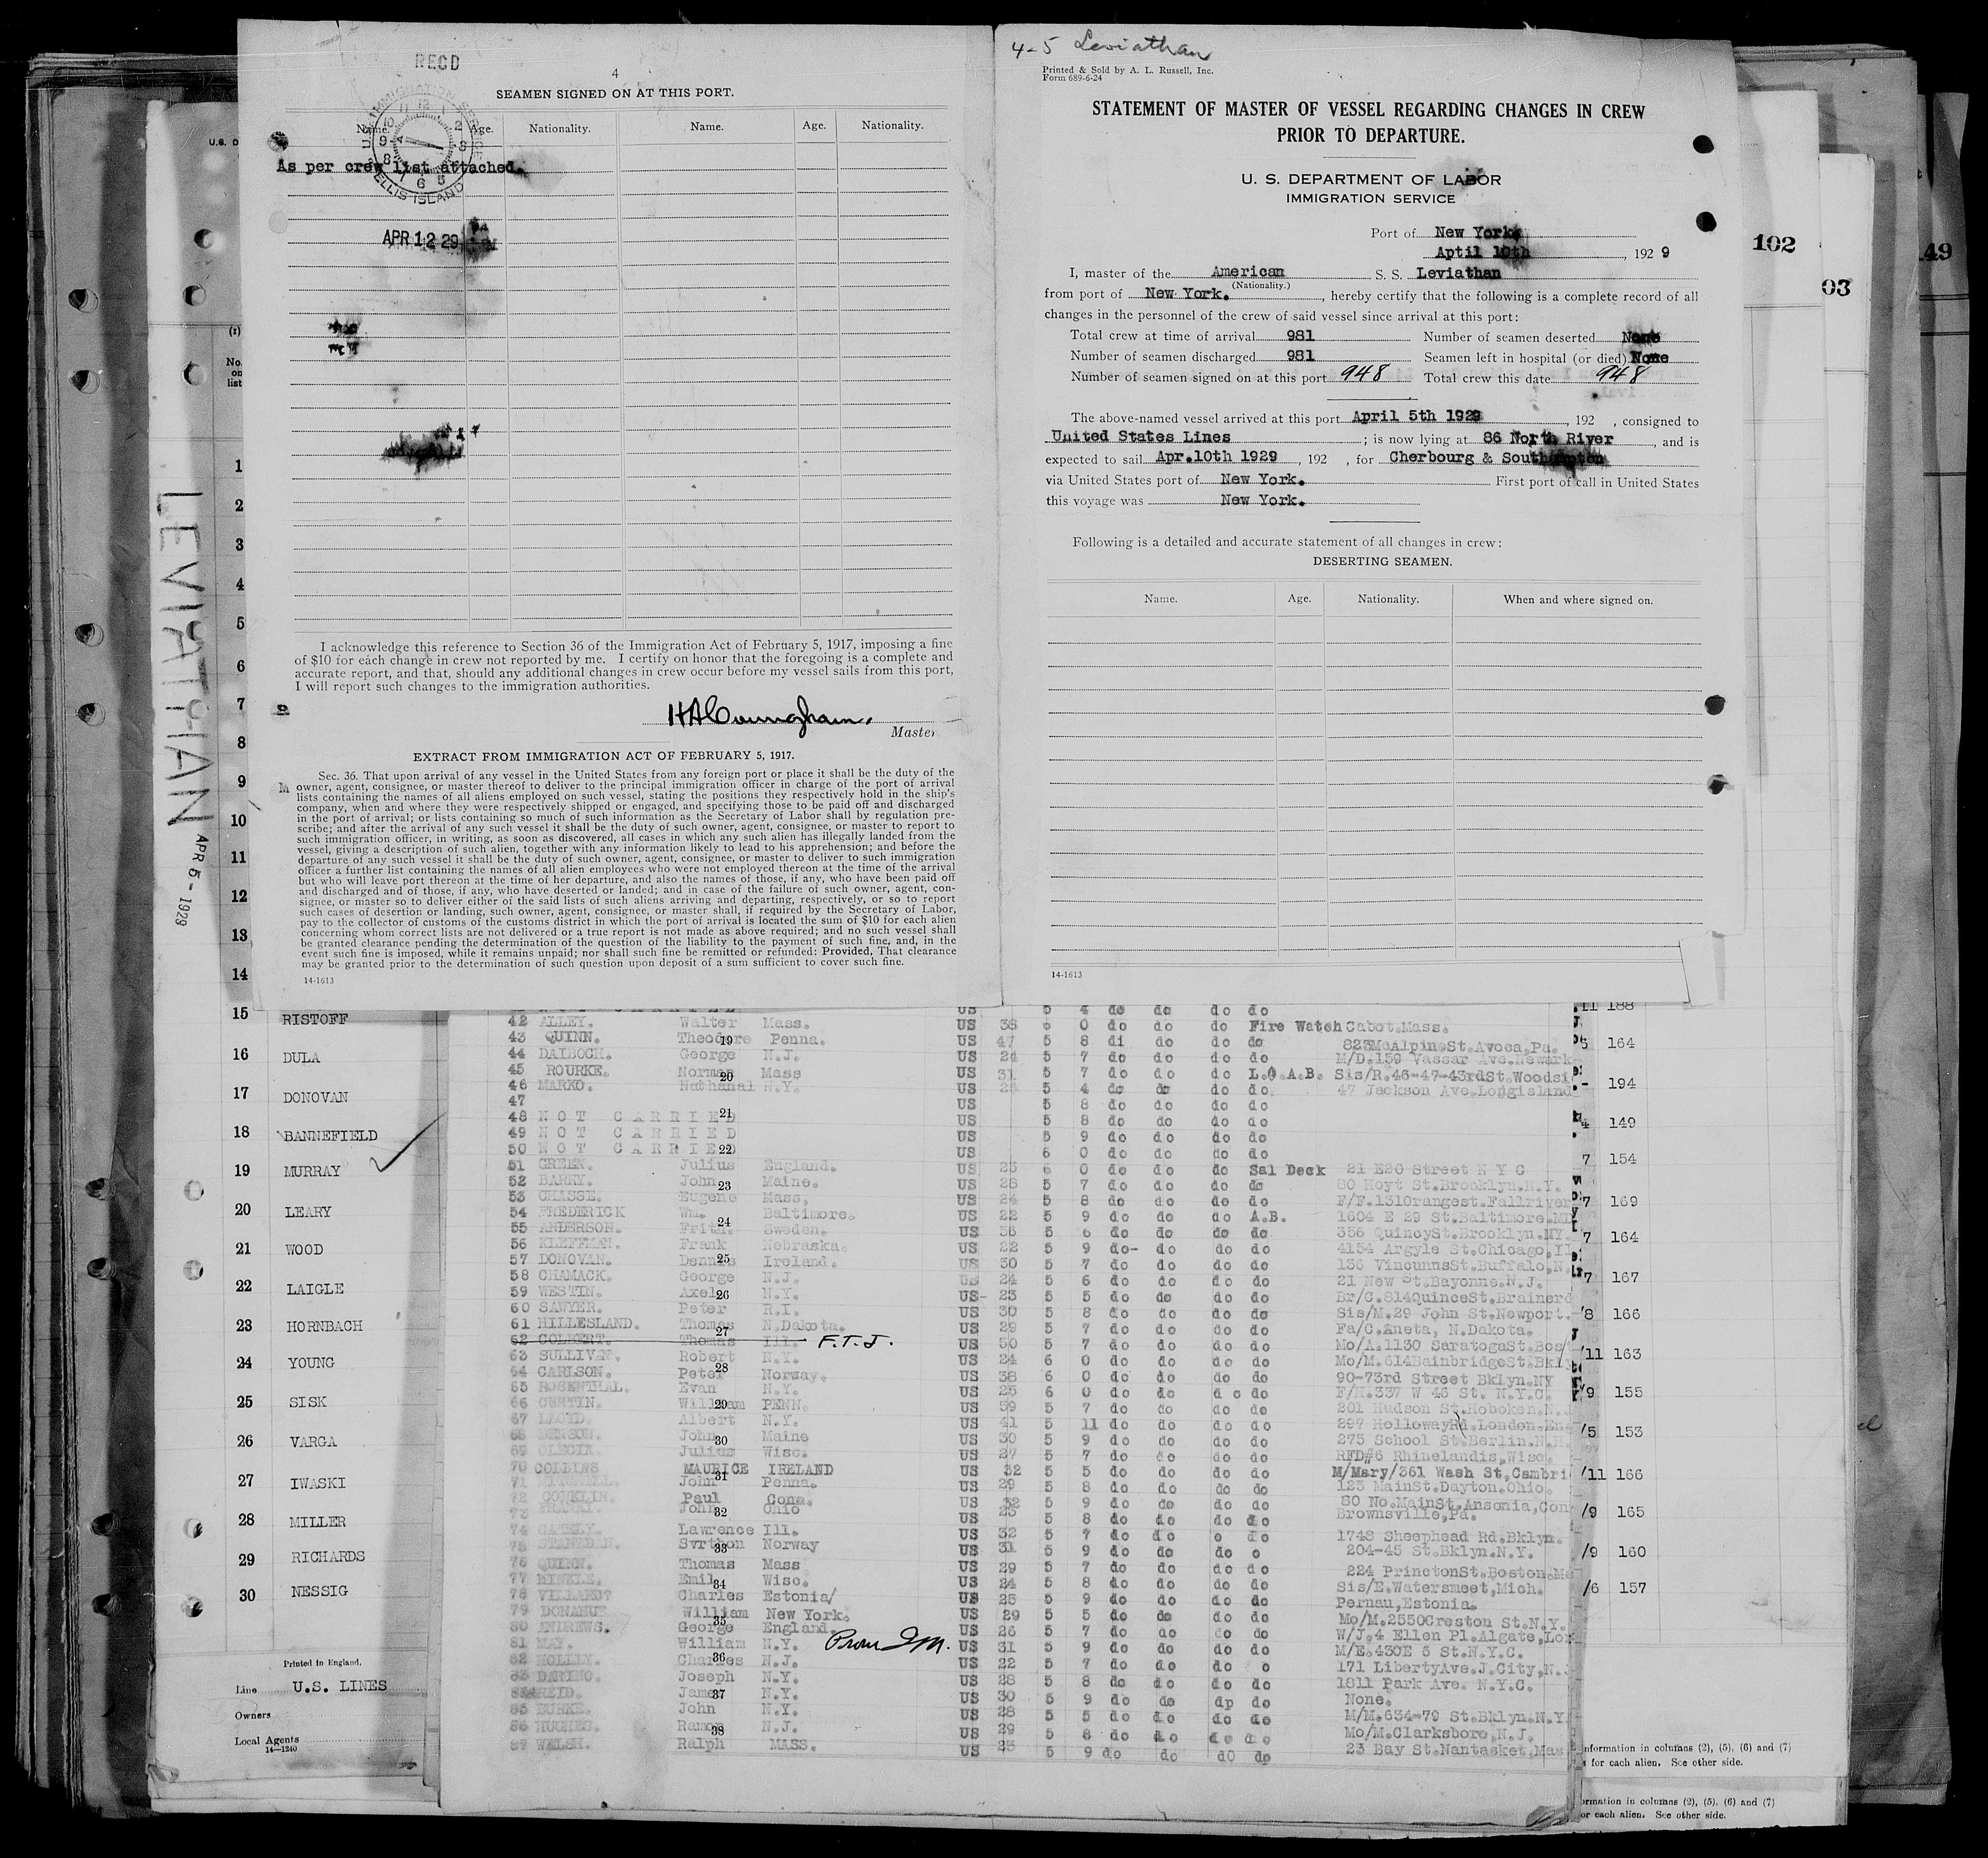 RECD
4
SEAMEN SIGNED ON AT THIS PORT.
Name. Age. Nationality. Name. Age. Nationality.
As per crew list attached.
IMMIGRATION SERVICE
ELLIS ISLAND
APR 12 29
I acknowledge this reference to Section 36 of the Immigration Act of February 5, 1917, imposing a fine
of $10 for each change in crew not reported by me. I certify on honor that the foregoing is a complete and
accurate report, and that, should any additional changes in crew occur before my vessel sails from this port,
I will report such changes to the immigration authorities.
HACunningham.
Master
EXTRACT FROM IMMIGRATION ACT OF FEBRUARY 5, 1917.
Sec. 36. That upon arrival of any vessel in the United States from any foreign port or place it shall be the duty of the
owner, agent, consignee, or master thereof to deliver to the principal immigration officer in charge of the port of arrival
lists containing the names of all aliens employed on such vessel, stating the positions they respectively hold in the ship's
company, when and where they were respectively shipped or engaged, and specifying those to be paid off and discharged
in the port of arrival; or lists containing so much of such information as the Secretary of Labor shall by regulation pre-
scribe; and after the arrival of any such vessel it shall be the duty of such owner, agent, consignee, or master to report to
such immigration officer, in writing, as soon as discovered, all cases in which any such alien has illegally landed from the
vessel, giving a description of such alien, together with any information likely to lead to his apprehension; and before the
departure of any such vessel it shall be the duty of such owner, agent, consignee, or master to deliver to such immigration
officer a further list containing the names of all alien employees who were not employed thereon at the time of the arrival
but who will leave port thereon at the time of her departure, and also the names of those, if any, who have been paid off
and discharged and of those, if any, who have deserted or landed; and in case of the failure of such owner, agent, con-
signee, or master so to deliver either of the said lists of such aliens arriving and departing, respectively, or so to report
such cases of desertion or landing, such owner, agent, consignee, or master shall, if required by the Secretary of Labor,
pay to the collector of customs of the customs district in which the port of arrival is located the sum of $10 for each alien
concerning whom correct lists are not delivered or a true report is not made as above required; and no such vessel shall
be granted clearance pending the determination of the question of the liability to the payment of such fine, and, in the
event such fine is imposed, while it remains unpaid; nor shall such fine be remitted or refunded: Provided, That clearance
may be granted prior to the determination of such question upon deposit of a sum sufficient to cover such fine.
14-1613
4-5 Leviathan
Printed & Sold by A. L. Russell, Inc.
Form 689-6-24
STATEMENT OF MASTER OF VESSEL REGARDING CHANGES IN CREW
PRIOR TO DEPARTURE.
U. S. DEPARTMENT OF LABOR
IMMIGRATION SERVICE
Port of New York
Aptil 10th, 192 9
I, master of the American S. S. Leviathan
(Nationality.)
from port of New York., hereby certify that the following is a complete record of all
changes in the personnel of the crew of said vessel since arrival at this port:
Total crew at time of arrival 981 Number of seamen deserted None
Number of seamen discharged 981 Seamen left in hospital (or died) None
Number of seamen signed on at this port 948 Total crew this date 948
The above-named vessel arrived at this port April 5th 1929, 192 , consigned to
United States Lines ; is now lying at 86 North River, and is
expected to sail Apr.10th 1929, 192 , for Cherbourg & Southampton
via United States port of New York. First port of call in United States
this voyage was New York.
Following is a detailed and accurate statement of all changes in crew:
DESERTING SEAMEN.
Name. Age. Nationality. When and where signed on.
14-1613
102
03
49
LEVIATHAN APR 5 - 1929
U.S. D
(1)
No.
on
list
1
2
3
4
5
6
7
8
9
10
11
12
13
14
15 RISTOFF
16 DULA
17 DONOVAN
18 BANNEFIELD
19 MURRAY
20 LEARY
21 WOOD
22 LAIGLE
23 HORNBACH
24 YOUNG
25 SISK
26 VARGA
27 IWASKI
28 MILLER
29 RICHARDS
30 NESSIG
Printed in England.
Line U.S. LINES
Owners
Local Agents
14-1240
42 ALLEY. Walter Mass. US 38 6 0 do do do Fire Watch Cabot.Mass.
43 QUINN. Theodore Penna. US 47 5 8 di do do do 823McAlpinSt.Avoca,Pa.
44 DAIBOCH. George N.J. US 24 5 7 do do do do M/D.159 Vassar Ave.Newark
45 ROURKE. Norman Mass US 31 5 7 do do do L.O.A.B. Sis/R.46-47-43rdSt.Woodsi
46 MARKO. Nathanal N.Y. US 5 4 do do do do 47 Jackson Ave.Longisland
47 US 5 8 do do do do
48 NOT CARRIED US 5 8 do do do do
49 NOT CARRIED US 5 9 do do do do
50 NOT CARRIED US 6 0 do do do do
51 GREEN. Julius England. US 6 0 do do do Sal Deck 21 E20 Street N Y C
52 BARRY. John Maine. US 5 7 do do do do 80 Hoyt St.Brooklyn.N.Y.
53 CHASSE. Eugene Mass, US 24 5 8 do do do do F/F.131Orangest.Fallriver
54 FREDERICK Wm. Baltimore. US 22 5 9 do do do A.B. 1604 E 29 St.Baltimore.MD
55 ANDERSON. Sweden. US 36 5 6 do do do do 356 QuincySt.Brooklyn.NY.
56 KLEFFMAN. Frank Nebraska. US 22 5 9 do- do do do 4154 Argyle St.Chicago,Il
57 DONOVAN. Dennis Ireland. US 30 5 7 do do do do 136 VincunnsSt.Buffalo,N.
58 CHAMACK. George N.J. US 24 5 6 do do do do 21 New St.Bayonne.N.J.
59 WESTIN. Axel N.Y. US- 23 5 5 do do do do Br/C.814QuinceSt.Brainerd
60 SAWYER. Peter R.I. US 30 5 8 do do do do Sis/M.29 John St.Newport.
61 HILLESLAND. Thomas N.Dakota. US 29 5 7 do do do do Fa/C.Aneta, N.Dakota.
62 COLBERT. Thomas Ill. F.T.J. US 50 5 7 do do do do Mo/A.1130 SaratogaSt.Bos/
63 SULLIVAN. Robert N.Y. US 24 6 0 do do do do Mo/M.614BainbridgeSt.Bkl
64 CARLSON. Peter Norway. US 38 6 0 do do do do 90-73rd Street Bklyn.NY
65 ROSENTHAL. Evan N.Y. US 25 6 0 do do do do F/H.337 W 46 St. N.Y.C.
66 CURTIN. William PENN. US 59 5 7 do do do do 201 Hudson St.Hoboken,N.
67 LLOYD. Albert N.Y. US 41 5 11 do do do do 297 HollowayRd.London.En
68 John Maine US 30 5 9 do do do do 275 School St.Berlin.N.H.
69 Julius Wisc. US 27 5 7 do do do do RFD#6 Rhinelandis,Wisc.
70 COLLINS MAURICE IRELAND US 32 5 5 do do do do M/Mary/361 Wash St,Cambri
71 John Penna. US 29 5 8 do do do do 123 MainSt.Dayton.Ohio.
72 CONKLIN. Paul Conn. US 32 5 9 do do do do 80 No.MainSt.Ansonia,Con
73 John Ohio US 5 8 do do do do Brownsville,Pa.
74 GATELY. Lawrence Ill. US 32 5 7 do do o do 1748 Sheephead Rd.Bklyn.
75 Norway US 31 5 9 do do do o 204-45 St.Bklyn.N.Y.
76 QUINN. Thomas Mass US 29 5 7 do do do do 224 PrinctonSt.Boston.Ma
77 HINKLE. Emil Wisc. US 24 5 8 do do do do Sis/E.Watersmeet,Mich.
78 Charles Estonia/ US 25 5 9 do do do do Pernau,Estonia.
79 DONAHUE William New York. US 29 5 5 do do do do Mo/M.2550Creston St.N.Y.
80 ANDREWS. George England. US 26 5 7 do do do do W/J.4 Ellen Pl.Algate,Lon
81 MAY. William N.Y. US 31 5 9 do do do do M/E.430E 6 St.N.Y.C.
82 HOLLY. Charles N.J. US 22 5 7 do do do o 171 LibertyAve.J.City,N.J
83 Joseph N.Y. US 28 5 8 do do do do 1811 Park Ave. N.Y.C.
REID. James N.Y. US 30 5 9 do do dp do None.
85 BURKE. John N.Y. US 28 5 5 do do do do M/M.634-79 St.Bklyn.N.Y.
86 HUGHES. Ramon N.J. US 29 5 8 do do do do Mo/M.Clarksboro,N.J.
87 WELSH. Ralph MASS. US 23 5 9 do do dO do 23 Bay St.Nantasket,Mas
19
20
21
22
23
24
25
26
27
28
29
30
31
32
33
34
35
36
37
38
11 188
5 164
- 194
4 149
7 154
7 169
7 164
7 167
8 166
11 163
9 155
5 153
/11 166
/9 165
/9 160
/6 157
nformation in columns (2), (5), (6) and (7)
for each alien. See other side.
ormation in columns (2), (5), (6) and (7)
or each alien. See other side.